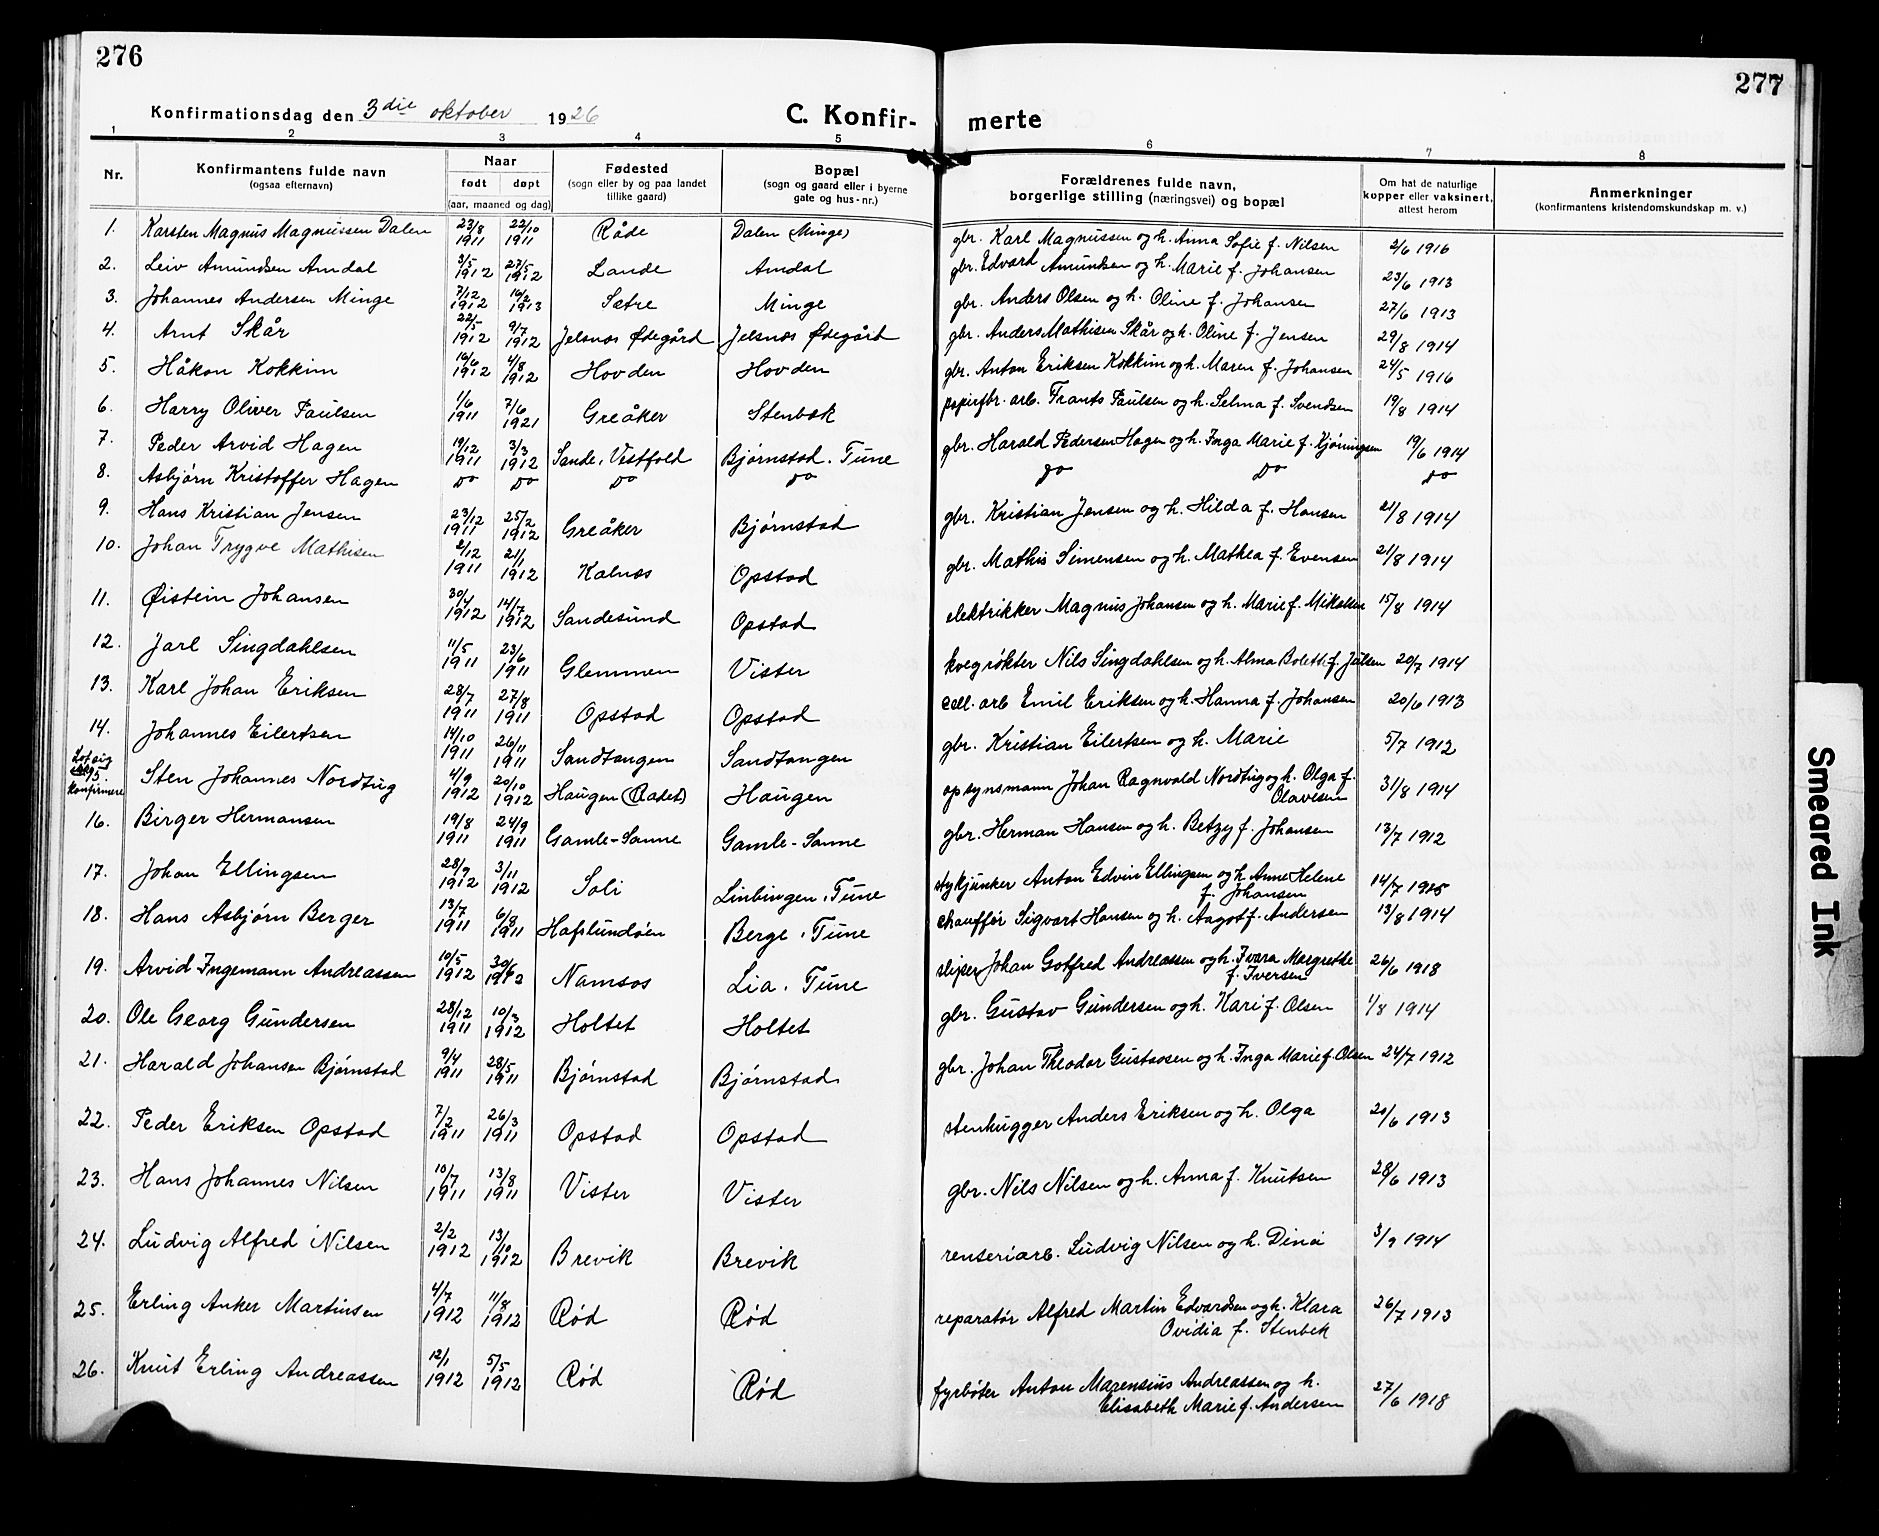 276
277
Konfirmationsdag den 3die oktober 1926
C. Konfir- merte
1 2 3 4 5 6 7 8
Nr.
Konfirmantens fulde navn
(ogsaa efternavn)
Naar
født døpt
(aar, maaned og dag)
Fødested
(sogn eller by og paa landet
tillike gaard)
Bopæl
(sogn og gaard eller i byerne
gate og hus-nr.)
Forældrenes fulde navn,
borgerlige stilling (næringsvei) og bopæl
Om hat de naturlige
kopper eller vaksinert,
attest herom
Anmerkninger
(konfirmantens kristendomskundskap m. v.)
1. Karsten Magnus Magnussen Dalen 23/8 1911 22/10 1911 Råde Dalen (Minge) gbr. Karl Magnussen og h. Anna Sofie f. Nilsen 2/6 1916
2. Leiv Amundsen Amdal 3/5 1912 27/5 1912 Lande Amdal gbr. Edvard Amundsen og h. Marie f. Johansen 23/6 1913
3. Johannes Andersen Minge 7/12 1912 16/2 1913 Sætre Minge gbr. Anders Olsen og h. Oline f. Johansen 27/6 1913
4. Arnt Skår 22/5 1912 9/7 1912 Jelsnæs Ødegård Jelsnæs Ødegård gbr. Anders Mathisen Skår og h. Oline f. Jensen 29/8 1914
5. Håkon Kokkim 16/6 1912 4/8 1912 Hovden Hovden gbr. Anton Eriksen Kokkim og h. Maren f. Johansen 24/5 1916
6. Harry Oliver Paulsen 1/6 1911 7/6 1921 Greåker Stenbæk papirfbr. arb. Frants Paulsen og h. Selma f. Svendsen 19/8 1914
7. Peder Arvid Hagen 19/12 1911 3/3 1912 Sande, Vestfold Bjørnstad, Tune gbr. Harald Pedersen Hagen og h. Inga Marie f. Kjøningsen 19/6 1914
8. Asbjørn Kristoffer Hagen do do do do do do do
9. Hans Kristian Jensen 23/12 1911 25/2 1912 Greåker Bjørnstad gbr. Kristian Jensen og h. Hilda f. Hansen 21/8 1914
10. Johan Trygve Mathisen 2/12 1911 21/1 1912 Kalnæs Opstad gbr. Mathis Simensen og h. Mathea f. Evensen 21/8 1914
11. Øistein Johansen 30/4 1912 14/7 1912 Sandesund Opstad elektrikker Magnus Johansen og h. Marie f. Mikalsen 15/8 1914
12. Jarl Singdahlsen 11/5 1911 23/6 1911 Glemmen Vister kvegrøkter Nils Singdahlsen og h. Alma Bolett. f. Julsen 20/7 1914
13. Karl Johan Eriksen 28/7 1911 27/8 1911 Opstad Opstad cell. arb Emil Eriksen og h. Hanna f. Johansen 20/6 1913
14. Johannes Eilertsen 14/10 1911 26/11 1911 Sandtangen Sandtangen gbr. Kristian Eilertsen og h. Marie 5/7 1912
Lot sig
15.
konfirmere
Sten Johannes Nordtug 4/9 1912 20/10 1912 Haugen (Radet) Haugen opsynsmann Johan Ragnvald Nordtug og h. Olga f.
Olavesen 31/8 1914
16. Birger Hermansen 19/8 1911 24/9 1911 Gamle-Sanne Gamle-Sanne gbr. Herman Hansen og h. Betzy f. Johansen 13/7 1912
17. Johan Ellingsen 28/9 1912 3/11 1912 Soli Linbingen, Tune stykjunker Anton Edvin Ellingsen og h. Anne Helene
f. Johansen 14/7 1915
18. Hans Asbjørn Berger 13/7 1911 6/8 1911 Hafslundsøen Berge, Tune chauffør Sigvart Hansen og h. Aagot f. Andersen 13/8 1914
19. Arvid Ingemann Andreassen 10/5 1912 30/6 1912 Namsos Lia, Tune sliper Johan Gotfred Andreassen og h. Ivara Margrethe
f. Iversen 26/6 1918
20. Ole Georg Gundersen 28/12 1911 10/3 1912 Holtet Holtet gbr. Gustav Gundersen og h. Kari f. Olsen 1/8 1914
21. Harald Johansen Bjørnstad 9/4 1911 28/5 1911 Bjørnstad Bjørnstad gbr. Johan Theodor Gustavsen og h. Inga Marie f. Olsen 24/7 1912
22. Peder Eriksen Opstad 7/2 1911 26/3 1911 Opstad Opstad stenhugger Anders Eriksen og h. Olga 20/6 1913
23. Hans Johannes Nilsen 10/7 1911 13/8 1911 Vister Vister gbr. Nils Nilsen og h. Anna f. Knutsen 28/6 1913
24. Ludvig Alfred Nilsen 2/2 1912 13/10 1912 Brevik Brevik renseriarb. Ludvig Nilsen og h. Dina 3/9 1914
25. Erling Anker Martinsen 4/7 1912 11/8 1912 Rød Rød reparatør Alfred Martin Edvardsen og h. Klara
Ovidia f. Stenbek 26/7 1913
26. Knut Erling Andreassen 12/1 1912 5/5 1912 Rød Rød fyrbøter Anton Marensius Andreassen og h.
Elisabeth Marie f. Andersen 27/6 1918
Smeared Ink